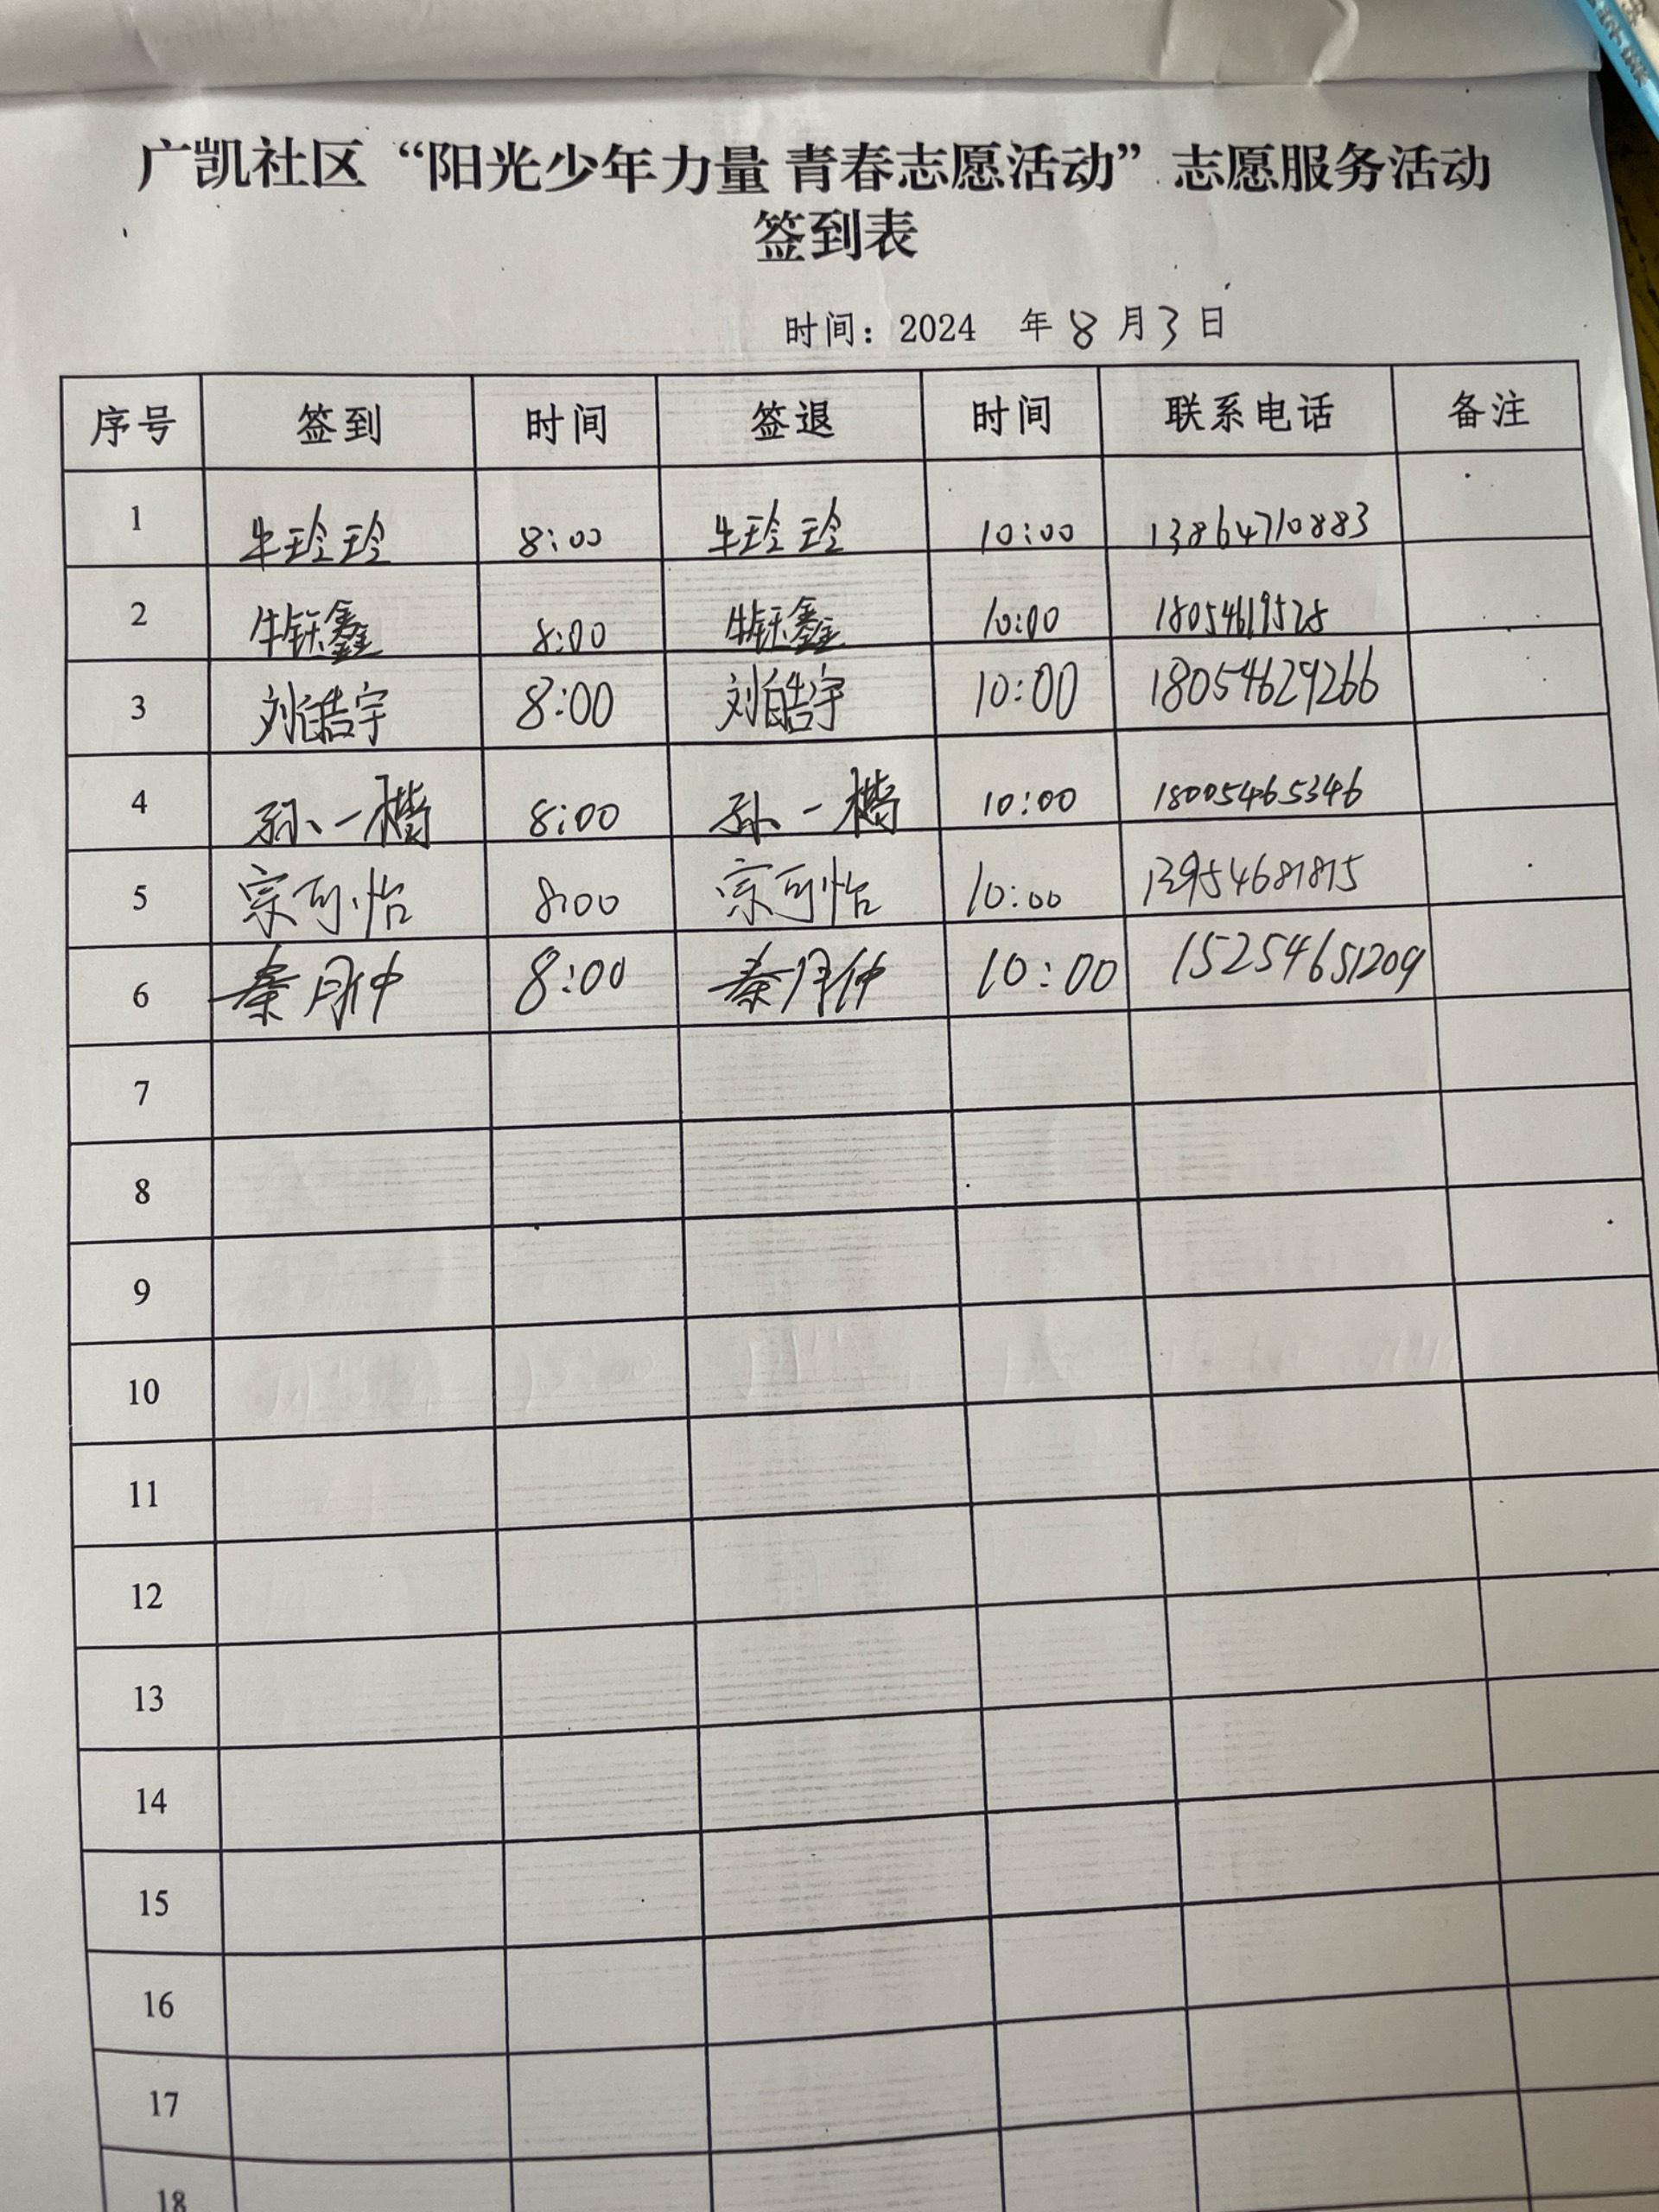 广凯社区“阳光少年力量 青春志愿活动”志愿服务活动
签到表
时间：2024 年 8 月 3 日
序号 签到 时间 签退 时间 联系电话 备注
1 牛玲玲 8:00 牛玲玲 10:00 13864710883
2 牛钰鑫 8:00 牛钰鑫 10:00 18054619528
3 刘皓宇 8:00 刘皓宇 10:00 18054629266
4 孙一 8:00 孙一 10:00 18005465346
5 宗可怡 8:00 宗可怡 10:00 13954681815
6 秦月仲 8:00 秦月仲 10:00 15254651209
7
8
9
10
11
12
13
14
15
16
17
18